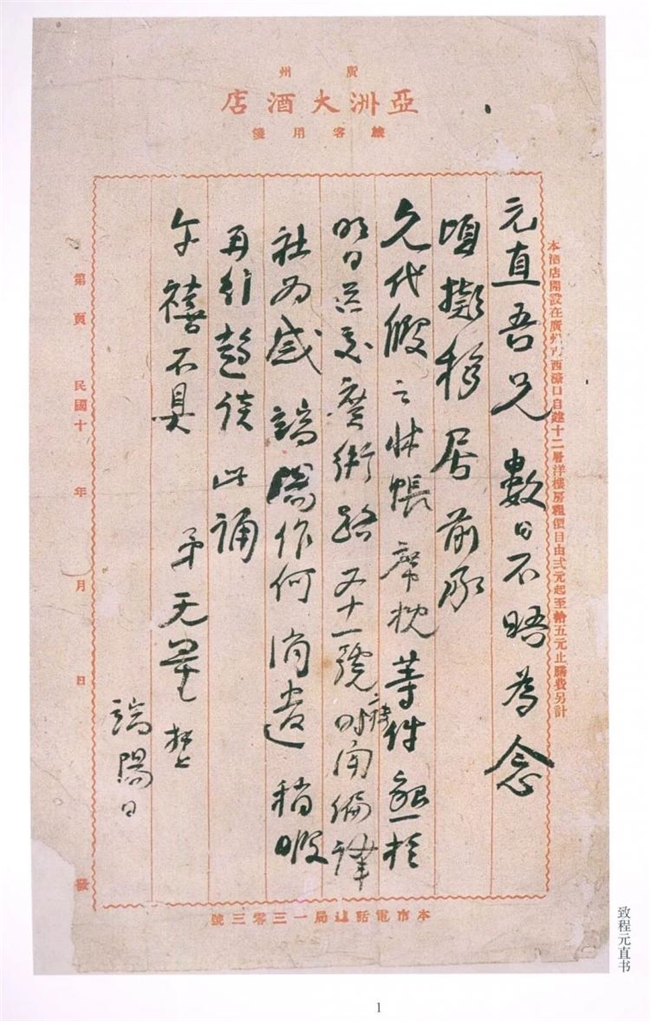 廣州
亞洲大酒店
旅客用箋
本酒店開設在廣州市西濠口自建十二層洋樓房租價目由弍元起至拾五元止膳費另計
元直吾兄數日不晤為念
頃擬移居前承
允代假之牀帳席枕等件祈於
明日送惠愛街路五十一號南編譯
社為感端陽作何消遣稍暇
再行趨談此誦
午禧不具
弟无量 頓
端陽日
第 頁 民國十 年 月 日 發
本市電話總局一三零三號
致程元直书
1